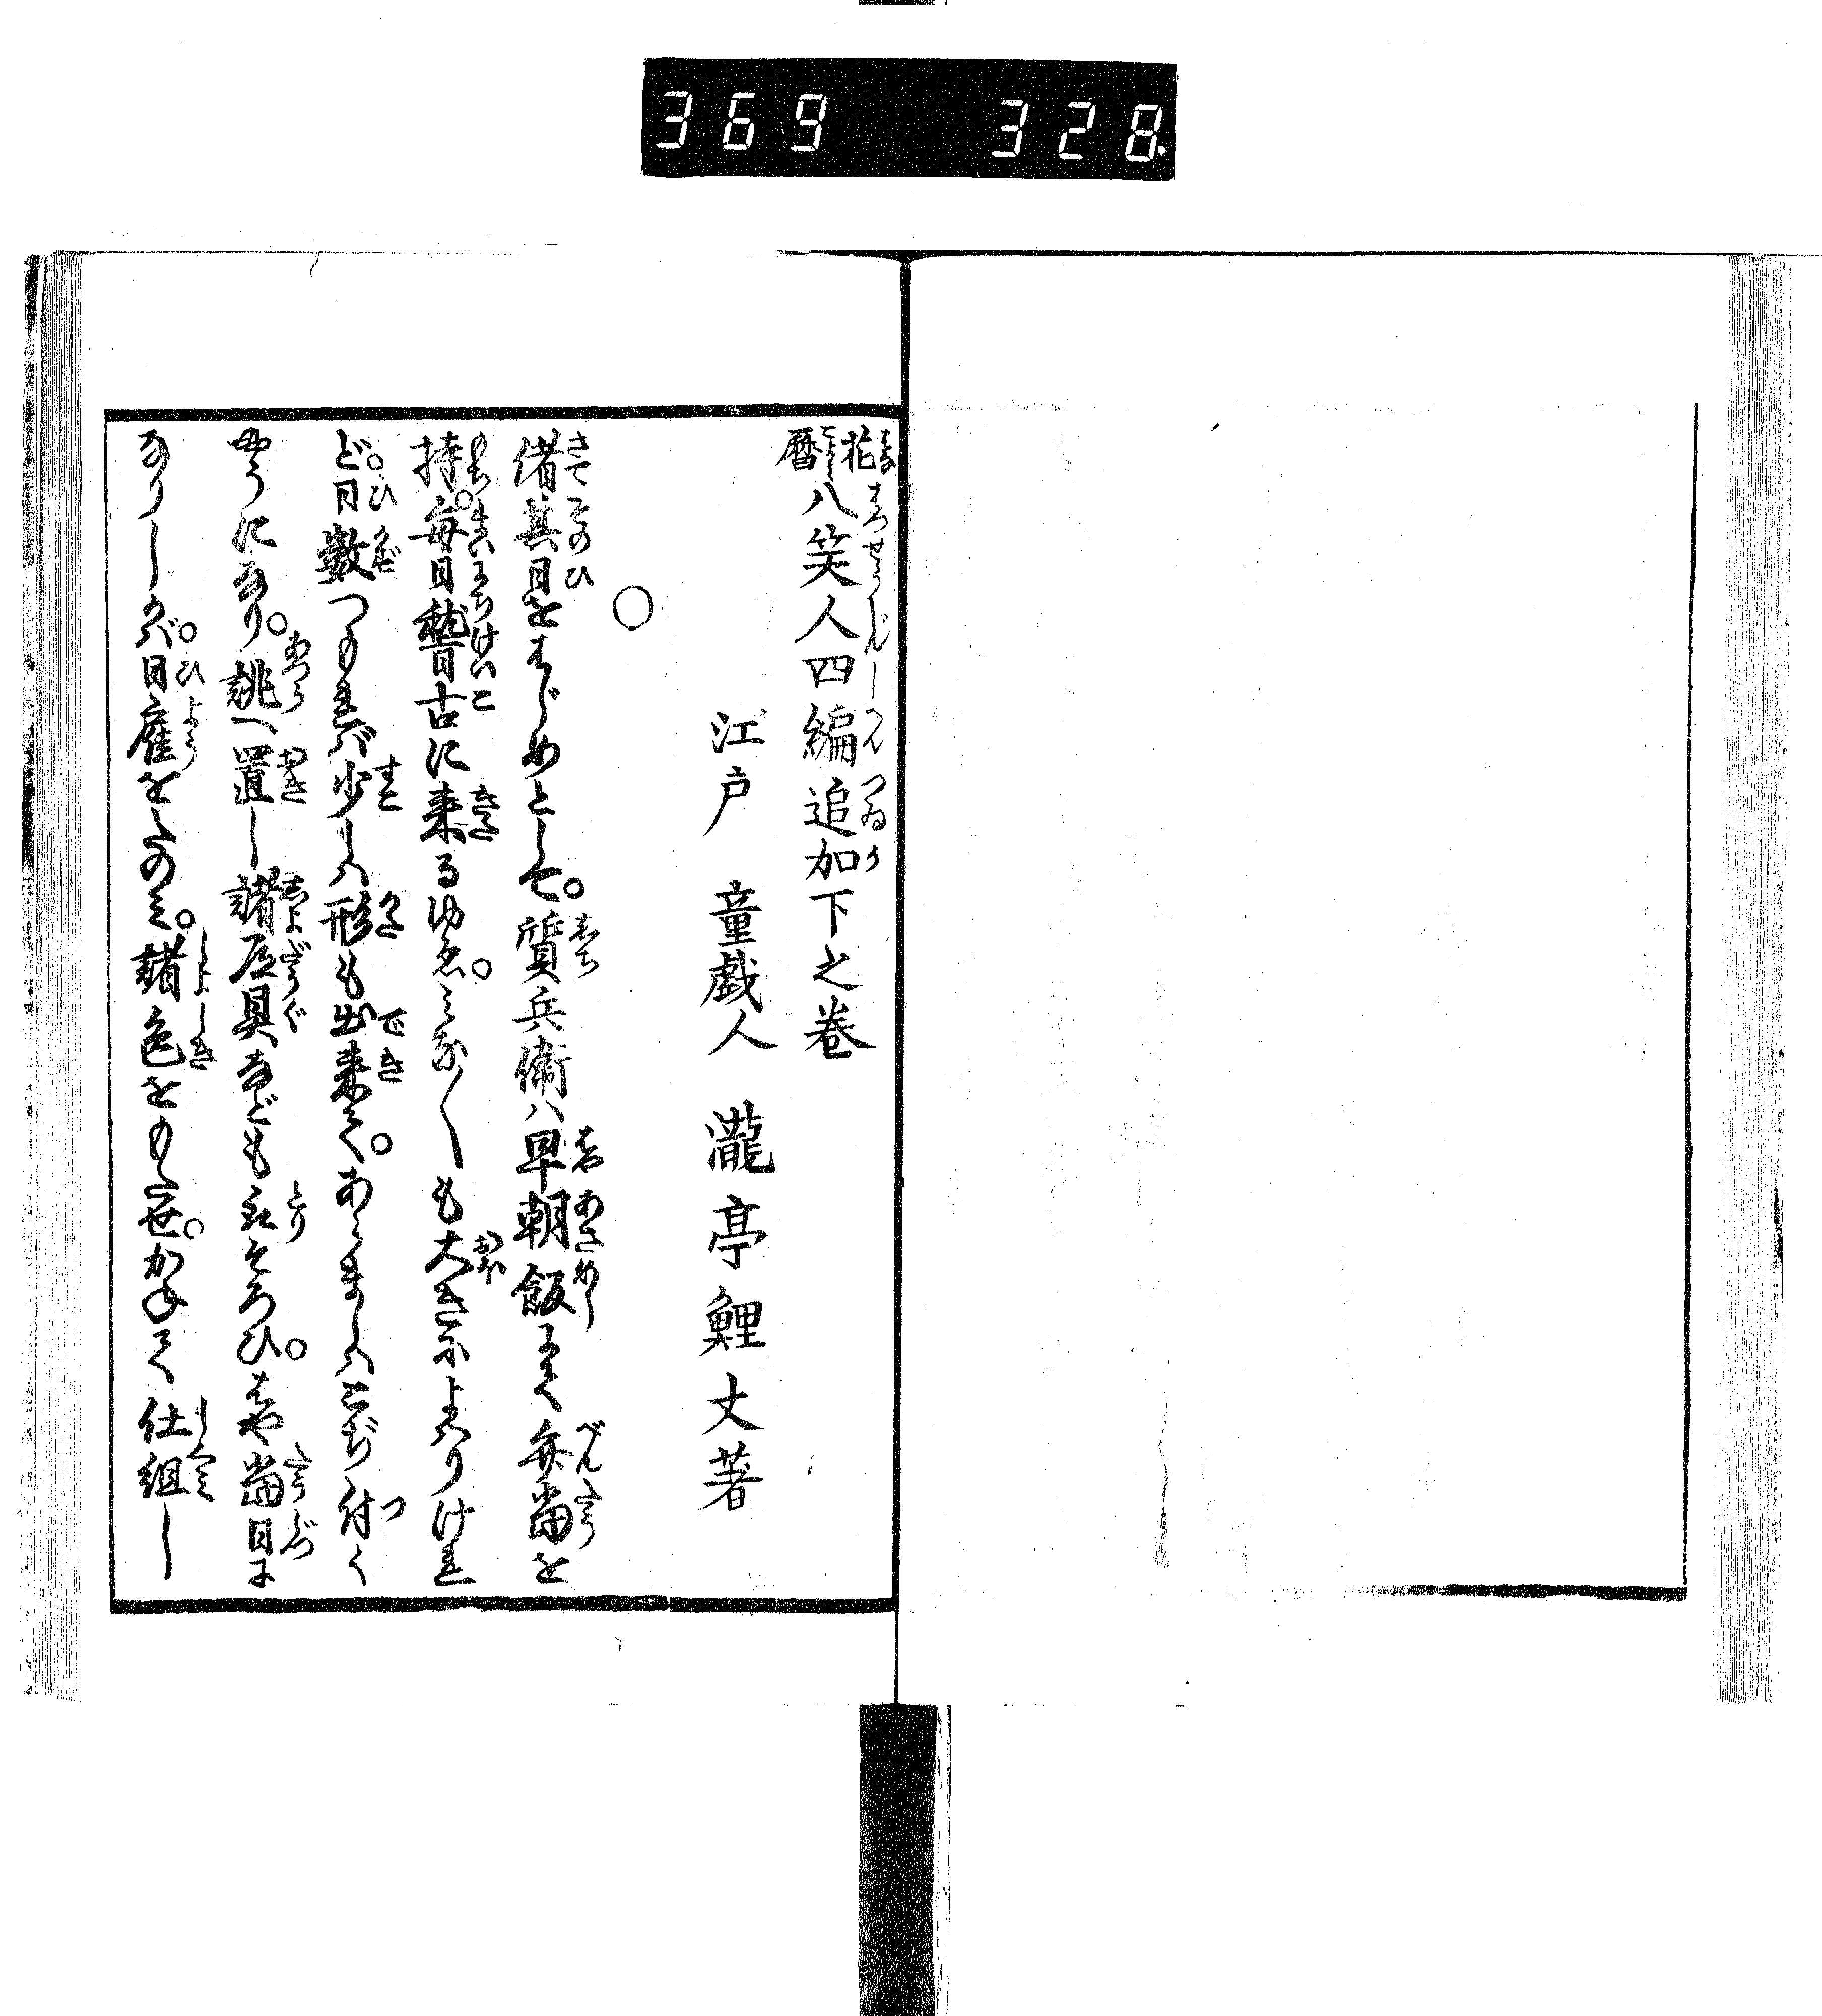 369 328
花暦八笑人四編追加下之巻
江戸 童戯人 瀧亭鯉丈著
○
偖其日をはじめとして。質兵衛ハ早朝飯にて弁当を
持。毎日稽古に来るゆゑ。みな〳〵も大きによハりけれ
ど。日数つもれバ少しハ形も出来て。あらましハこぢ付く
やうになり。誂へ置し諸道具なども取そろひ。はや当日に
なりしかバ。日雇をたのミ。諸色をもたせ。かねて仕組し